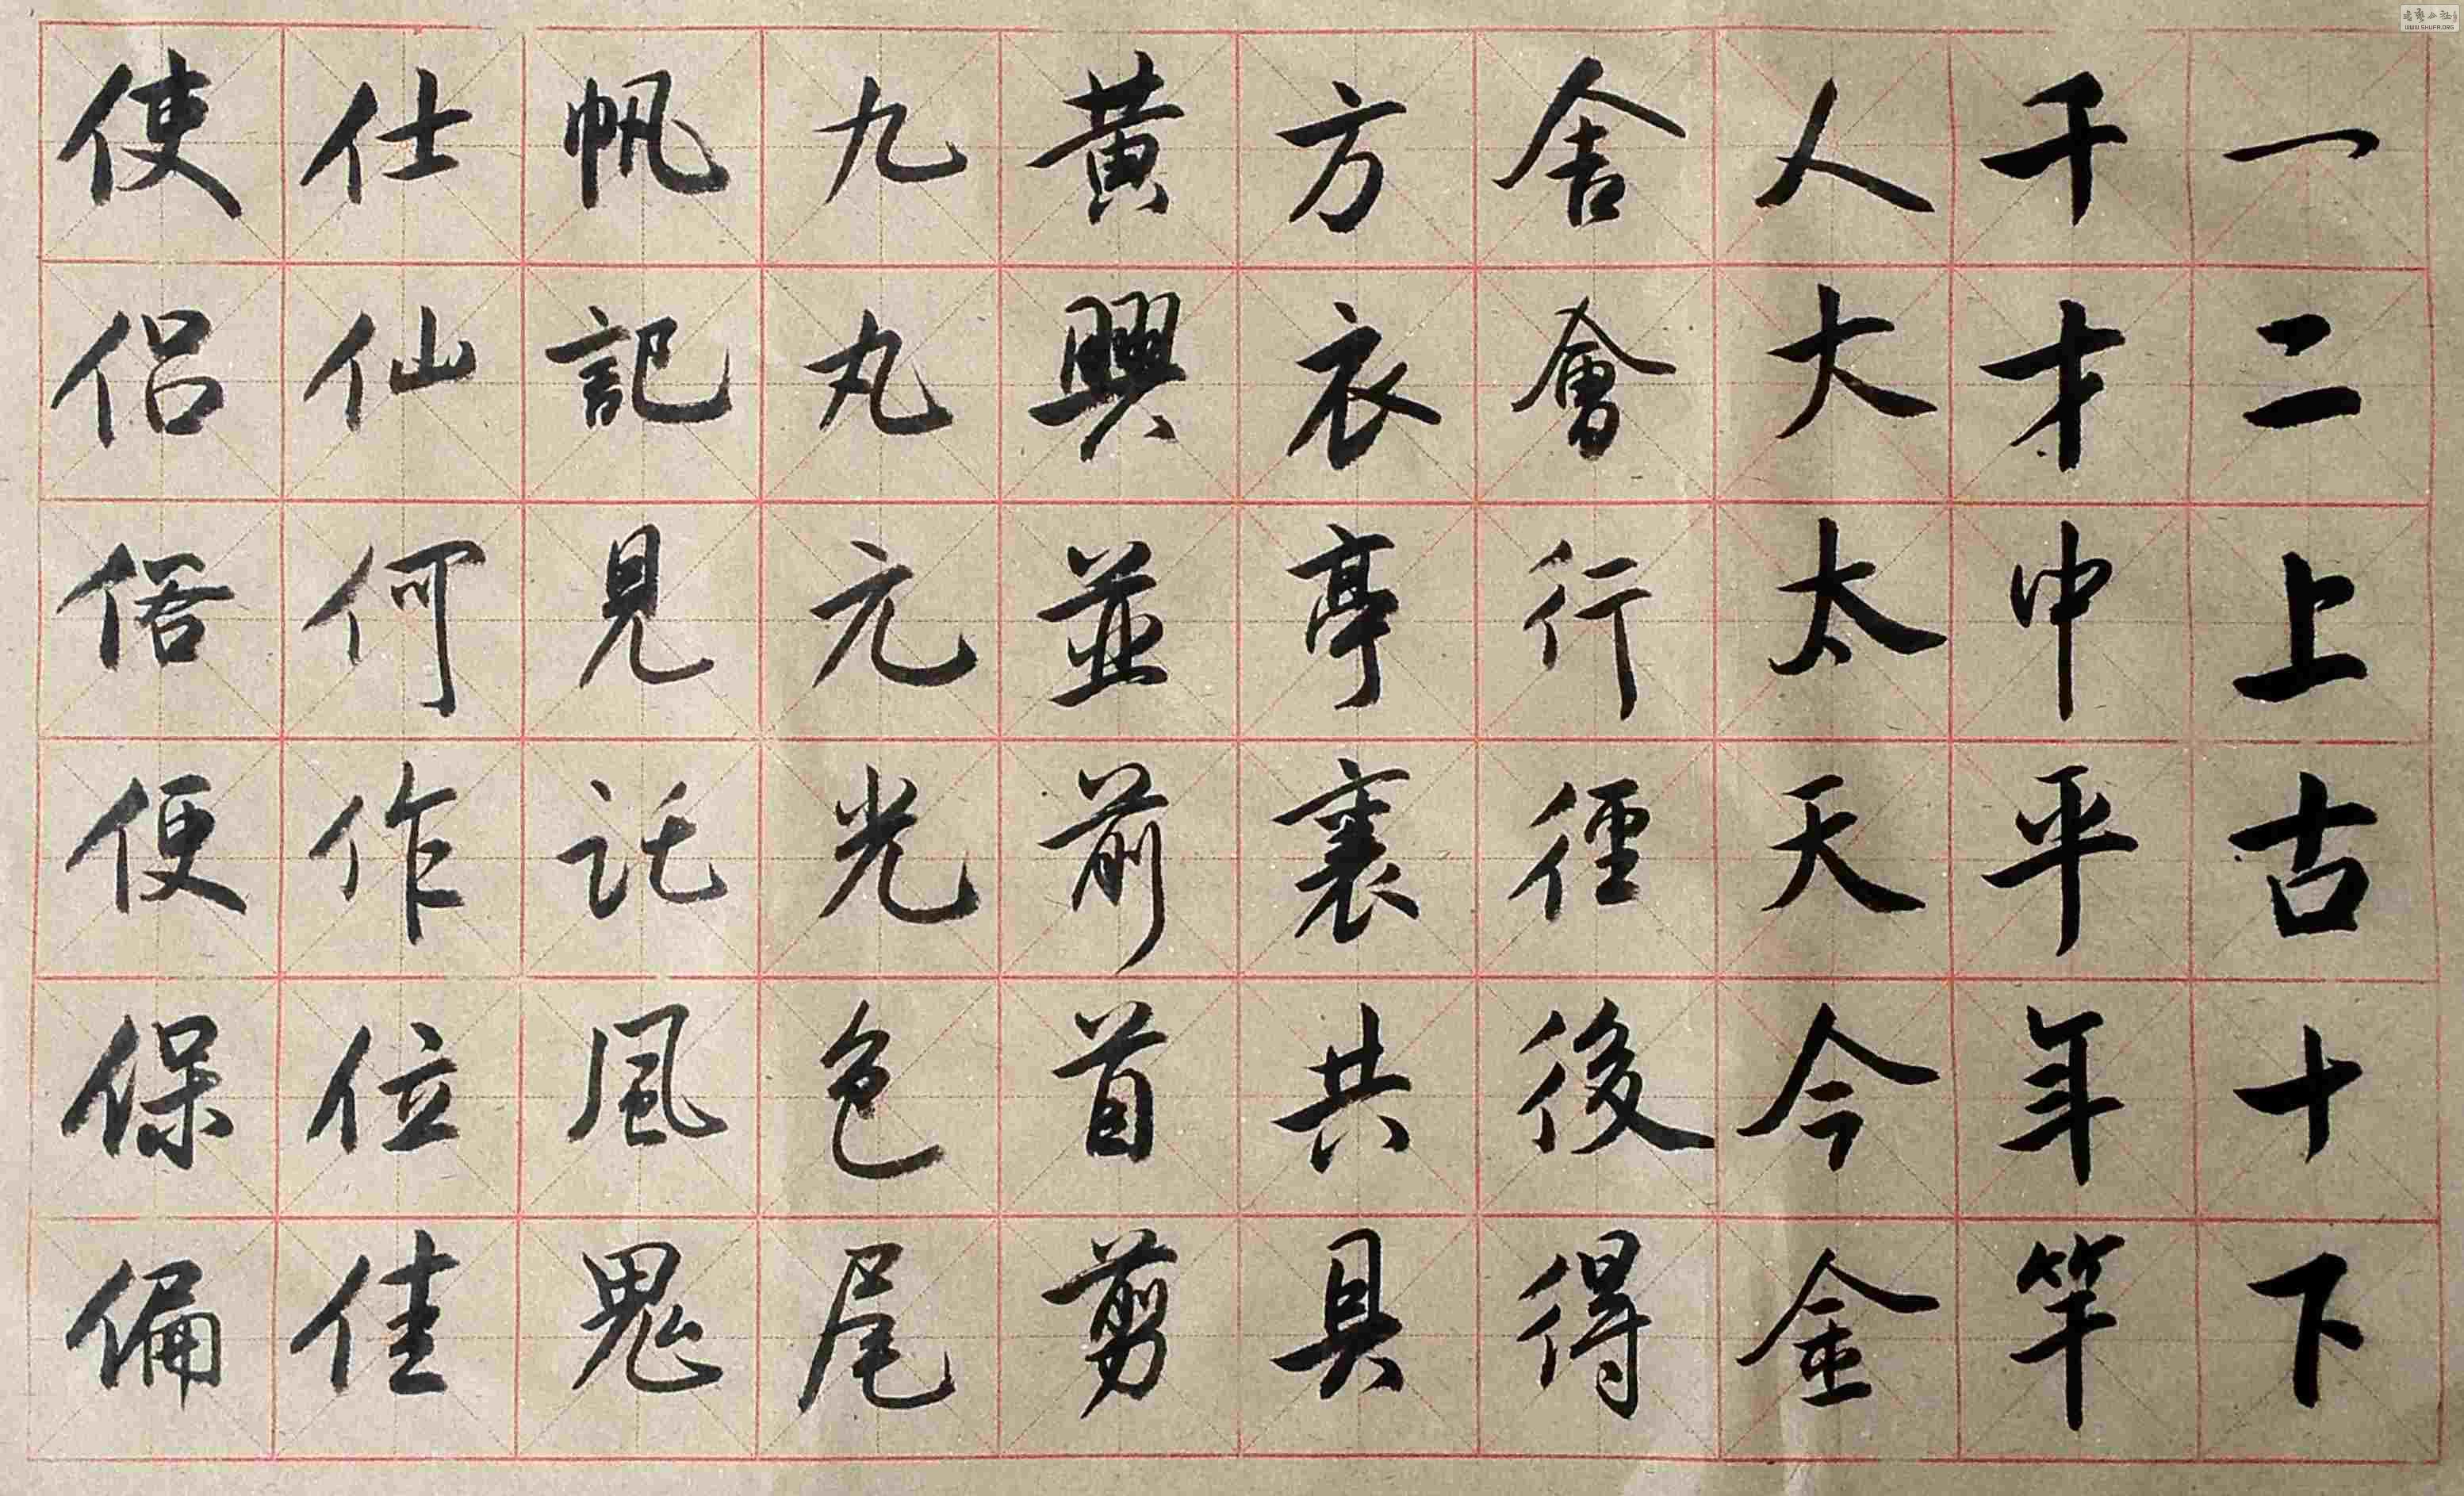 一二上古十下
千才中平年竿
人大太天今金
舍會行徑後得
方衣亭裏共具
黃興並前首剪
九丸元光色尾
帆記見託風鬼
仕仙何作位佳
使侶俉便保偏
WWW.SHUFA.ORG